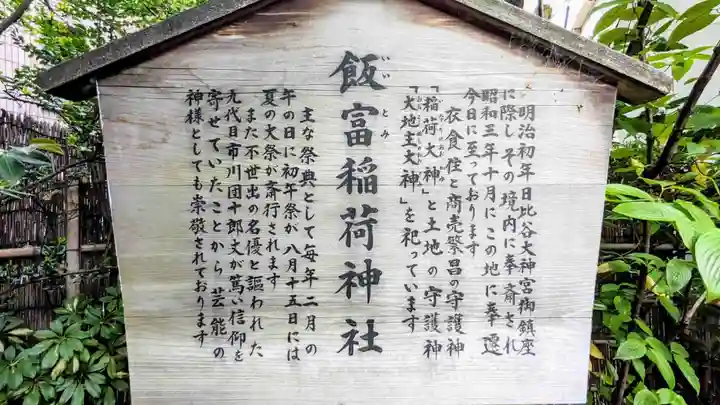 明治初年日比谷大神宮御鎮座
に際しその境内に奉斎され
昭和三年十月にこの地に奉遷
今日に至っております
衣食住と商売繁昌の守護神
「稲荷大神」と土地の守護神
「大地主大神」を祀っています
飯富稲荷神社
いいとみ
主な祭典として毎年二月の
午の日に初午祭が八月十五日には
夏の大祭が斎行されます
また不世出の名優と謳われた
九代目市川団十郎丈が篤い信仰を
寄せていたことから芸能の
神様としても崇敬されております